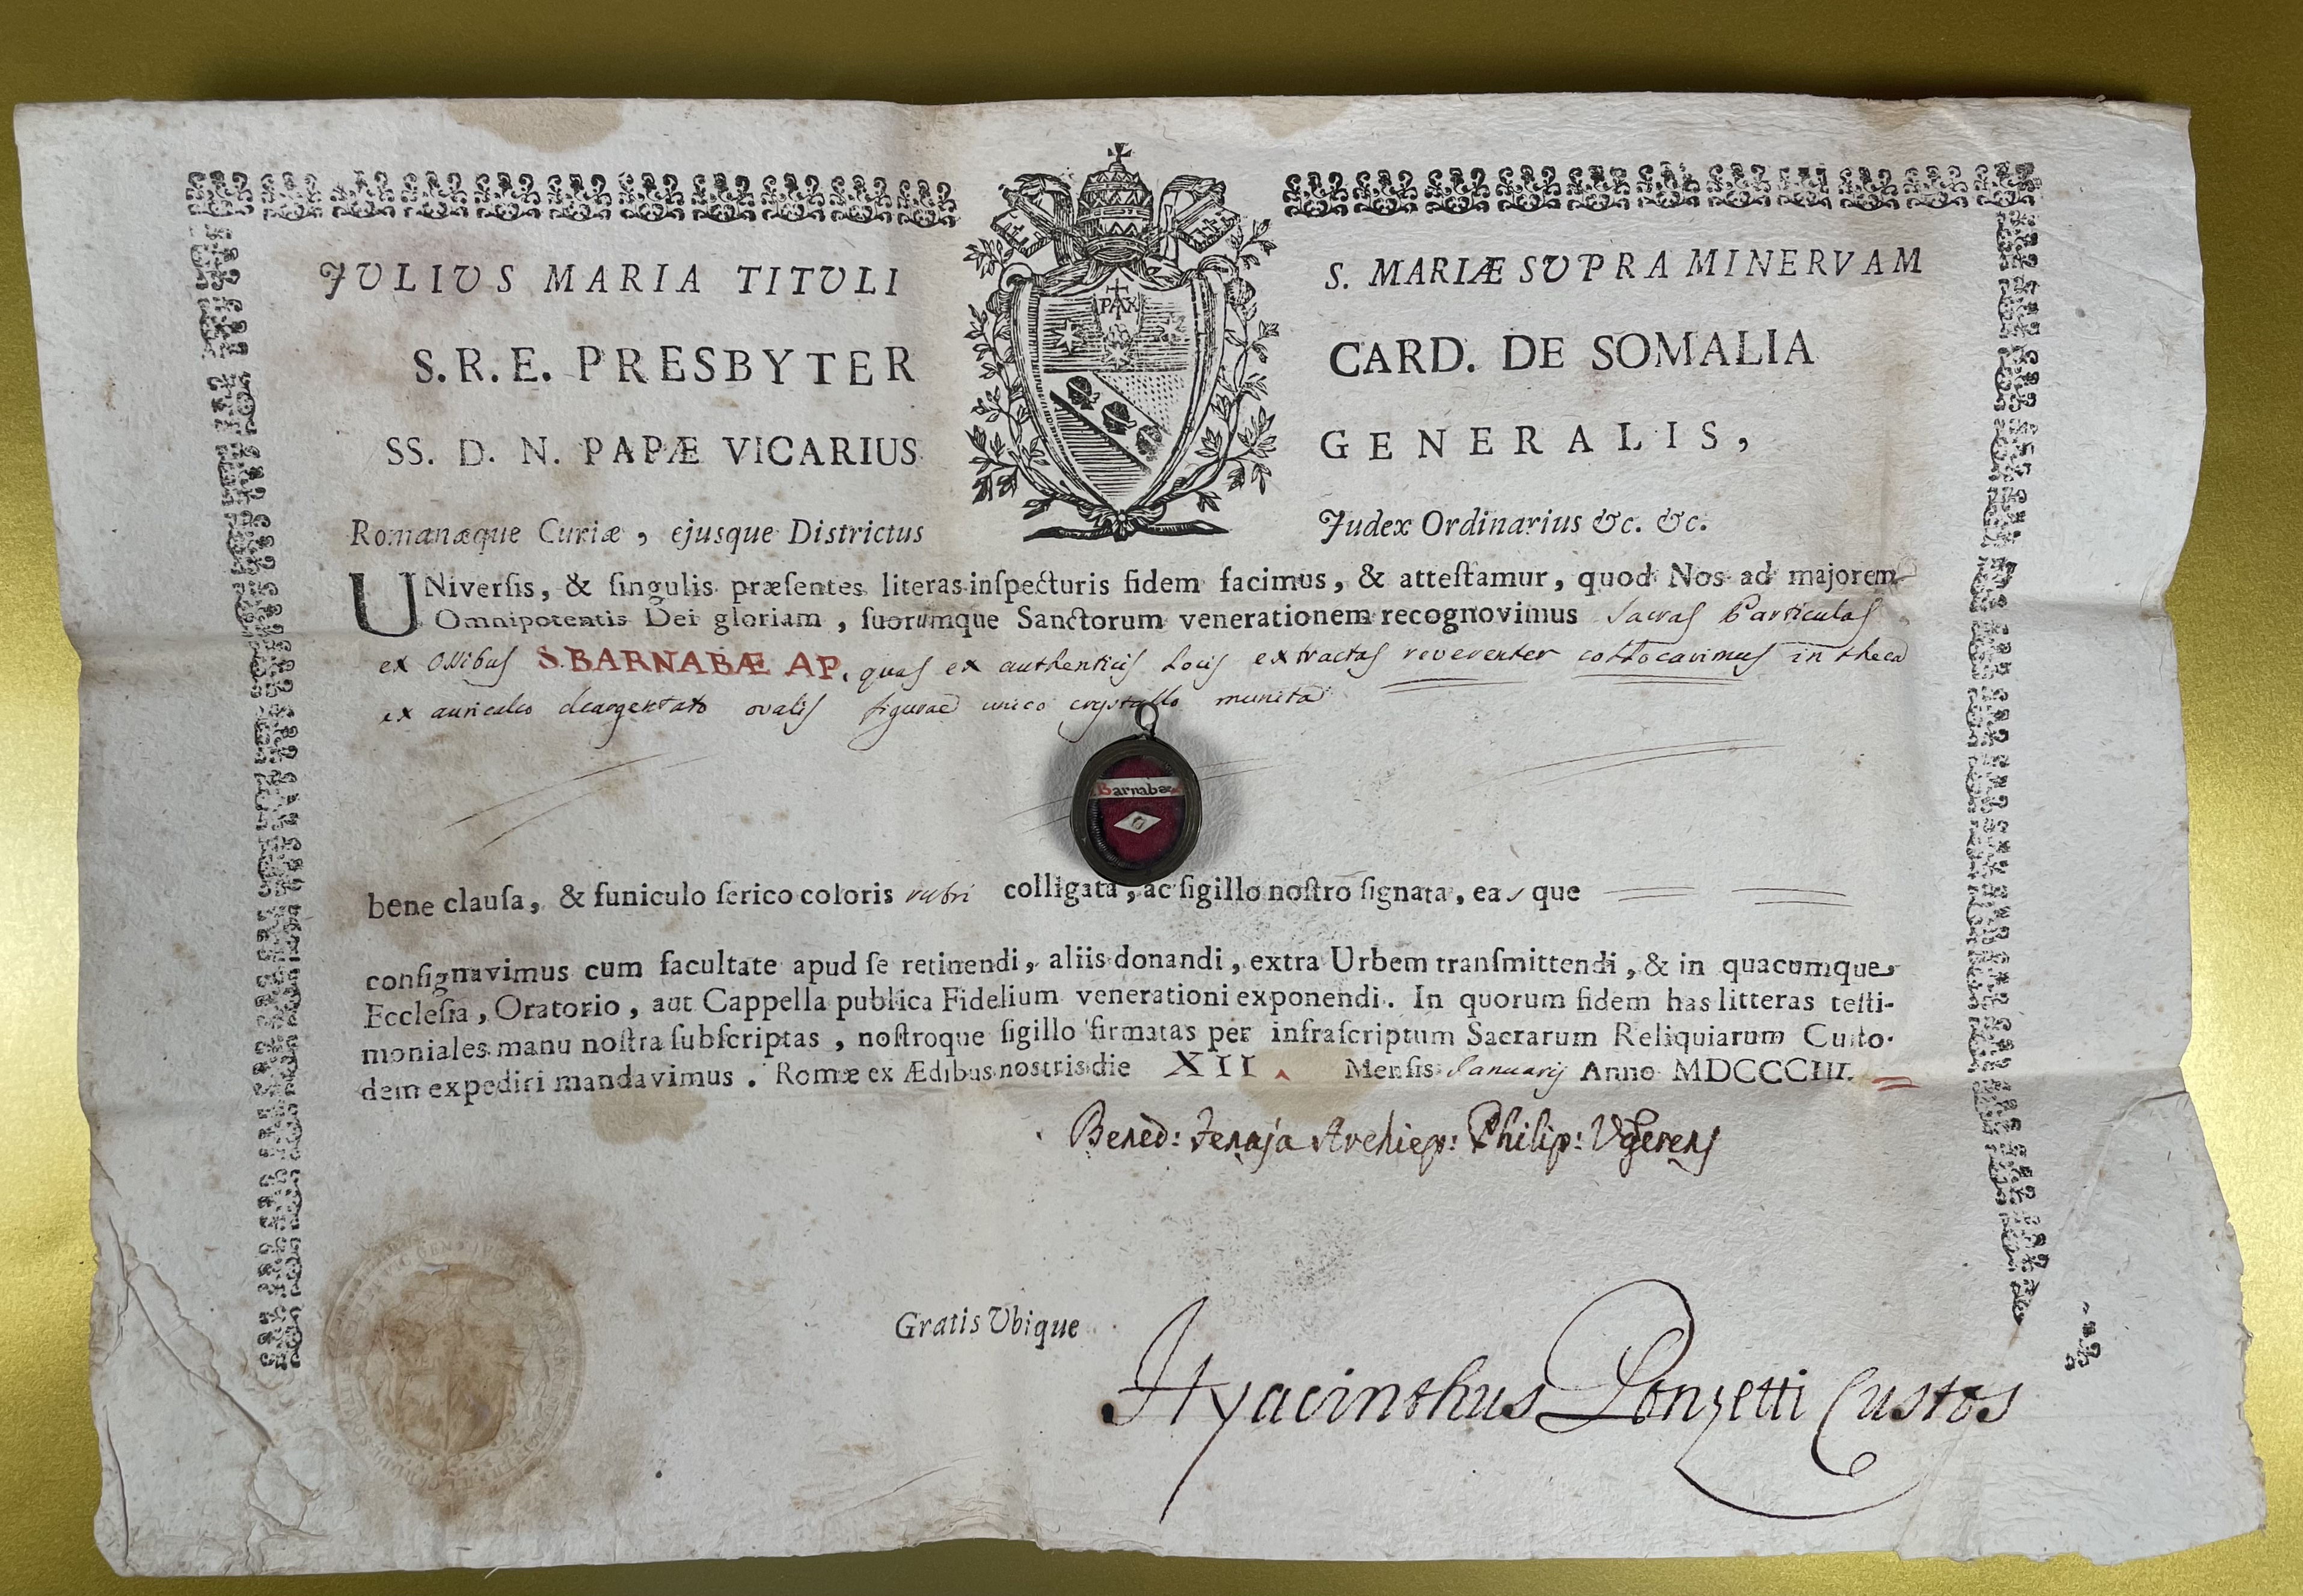 JULIUS MARIA TITULI S. MARIÆ SUPRA MINERVAM
S.R.E. PRESBYTER CARD. DE SOMALIA
SS. D. N. PAPÆ VICARIUS GENERALIS,
Romanæque Curiæ, ejusque Districtus Judex Ordinarius &c. &c.
PAX
UNiversis, & singulis præsentes literas inspecturis fidem facimus, & attestamur, quod Nos ad majorem
Omnipotentis Dei gloriam, suorumque Sanctorum venerationem recognovimus Sacras Particulas
ex Ossibus S. BARNABÆ AP. quas ex authenticis Locis extractas reverenter collocavimus in theca
ex auricalco deargentato ovalis figurae unico crystallo munita
Barnabæ
bene clausa, & funiculo serico coloris rubri colligata, ac sigillo nostro signata, eas que
consignavimus cum facultate apud se retinendi, aliis donandi, extra Urbem transmittendi, & in quacumque
Ecclesia, Oratorio, aut Cappella publica Fidelium venerationi exponendi. In quorum fidem has litteras testi-
moniales manu nostra subscriptas, nostroque sigillo firmatas per infrascriptum Sacrarum Reliquiarum Custo-
dem expediri mandavimus. Romæ ex Ædibus nostris die XII. Mensis Januarij Anno MDCCCIII.
Bened: Fenaja Archiep: Philip: Vgerens
Gratis Ubique
Hyacinthus Ponzetti Custos